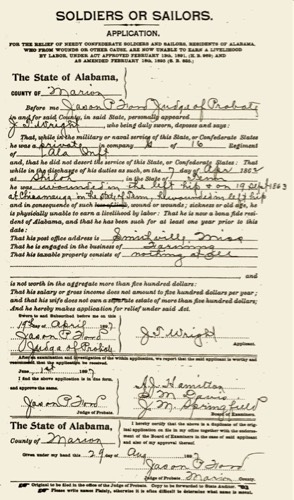 SOLDIERS OR SAILORS.
APPLICATION.
FOR THE RELIEF OF NEEDY CONFEDERATE SOLDIERS AND SAILORS, RESIDENTS OF ALABAMA,
WHO FROM WOUNDS OR OTHER CAUSE, ARE NOW UNABLE TO EARN A LIVELIHOOD
BY LABOR, UNDER ACT APPROVED FEBRUARY 13th, 1891, AND
AS AMENDED FEBRUARY
The State of Alabama,
COUNTY OF Marion
Before me Jason P Ford Judge of Probate
in and for said County, in State, personally appeared
J. T. Wright who being duly sworn, deposes and says:
That, while in the military or naval service of this State, or Confederate States
he was a private in company G of 16 Regiment
Ala Inft
and, that he did not desert the service of this State, or Confederate States. That
while in the discharge of his duties as such, on the 7 day of Apr 1862
at Shiloh in the State of Tenn
he was wounded in the left hip & on 19 Sept 1863
at Chicamauga in the State of Tenn, Rewounded in left hip
and in consequence of such wound or wounds; sickness or old age,
is physically unable to earn a livelihood by labor: That he is now a bona fide resi-
dent of Alabama, and that he has been such for at least one year prior to this
date:
That his post office address is Smithville Miss
That he is engaged in the business of Farming
That his taxable property consists of nothing at all
and
is not worth in the aggregate more than five hundred dollars:
That his salary or gross income does not amount to five hundred dollars per year;
and that his wife does not own a separate estate of more than five hundred dollars.
And he hereby makes application for relief under said Act.
Sworn to and Subscribed before me on this
19th April
Jason P Ford
Judge of Probate
J. T. Wright
Applicant.
After an examination and investigation of the within application, we respect that the said applicant is worthy and
recommend that the
June 1st
I find the above application is in due form,
and approve the same.
Jason P Ford
Judge of Probate.
A. J. Hamilton
J. M. Springfield
The State of Alabama,
County of Marion
I hereby certify that the above is a duplicate of the orig-
inal application on file in my office together with the endorse-
ment of the Board of Examiners in the case of said applicant
and also of my approval thereof.
Given under my hand this 29 day of Aug
Jason P Ford
Judge of Probate, Marion County.
Original to be filed in the office of the Judge of Probate. Copy to be forwarded to State Auditor.
Please write names Plainly, otherwise it is often difficult to determine what name is meant.